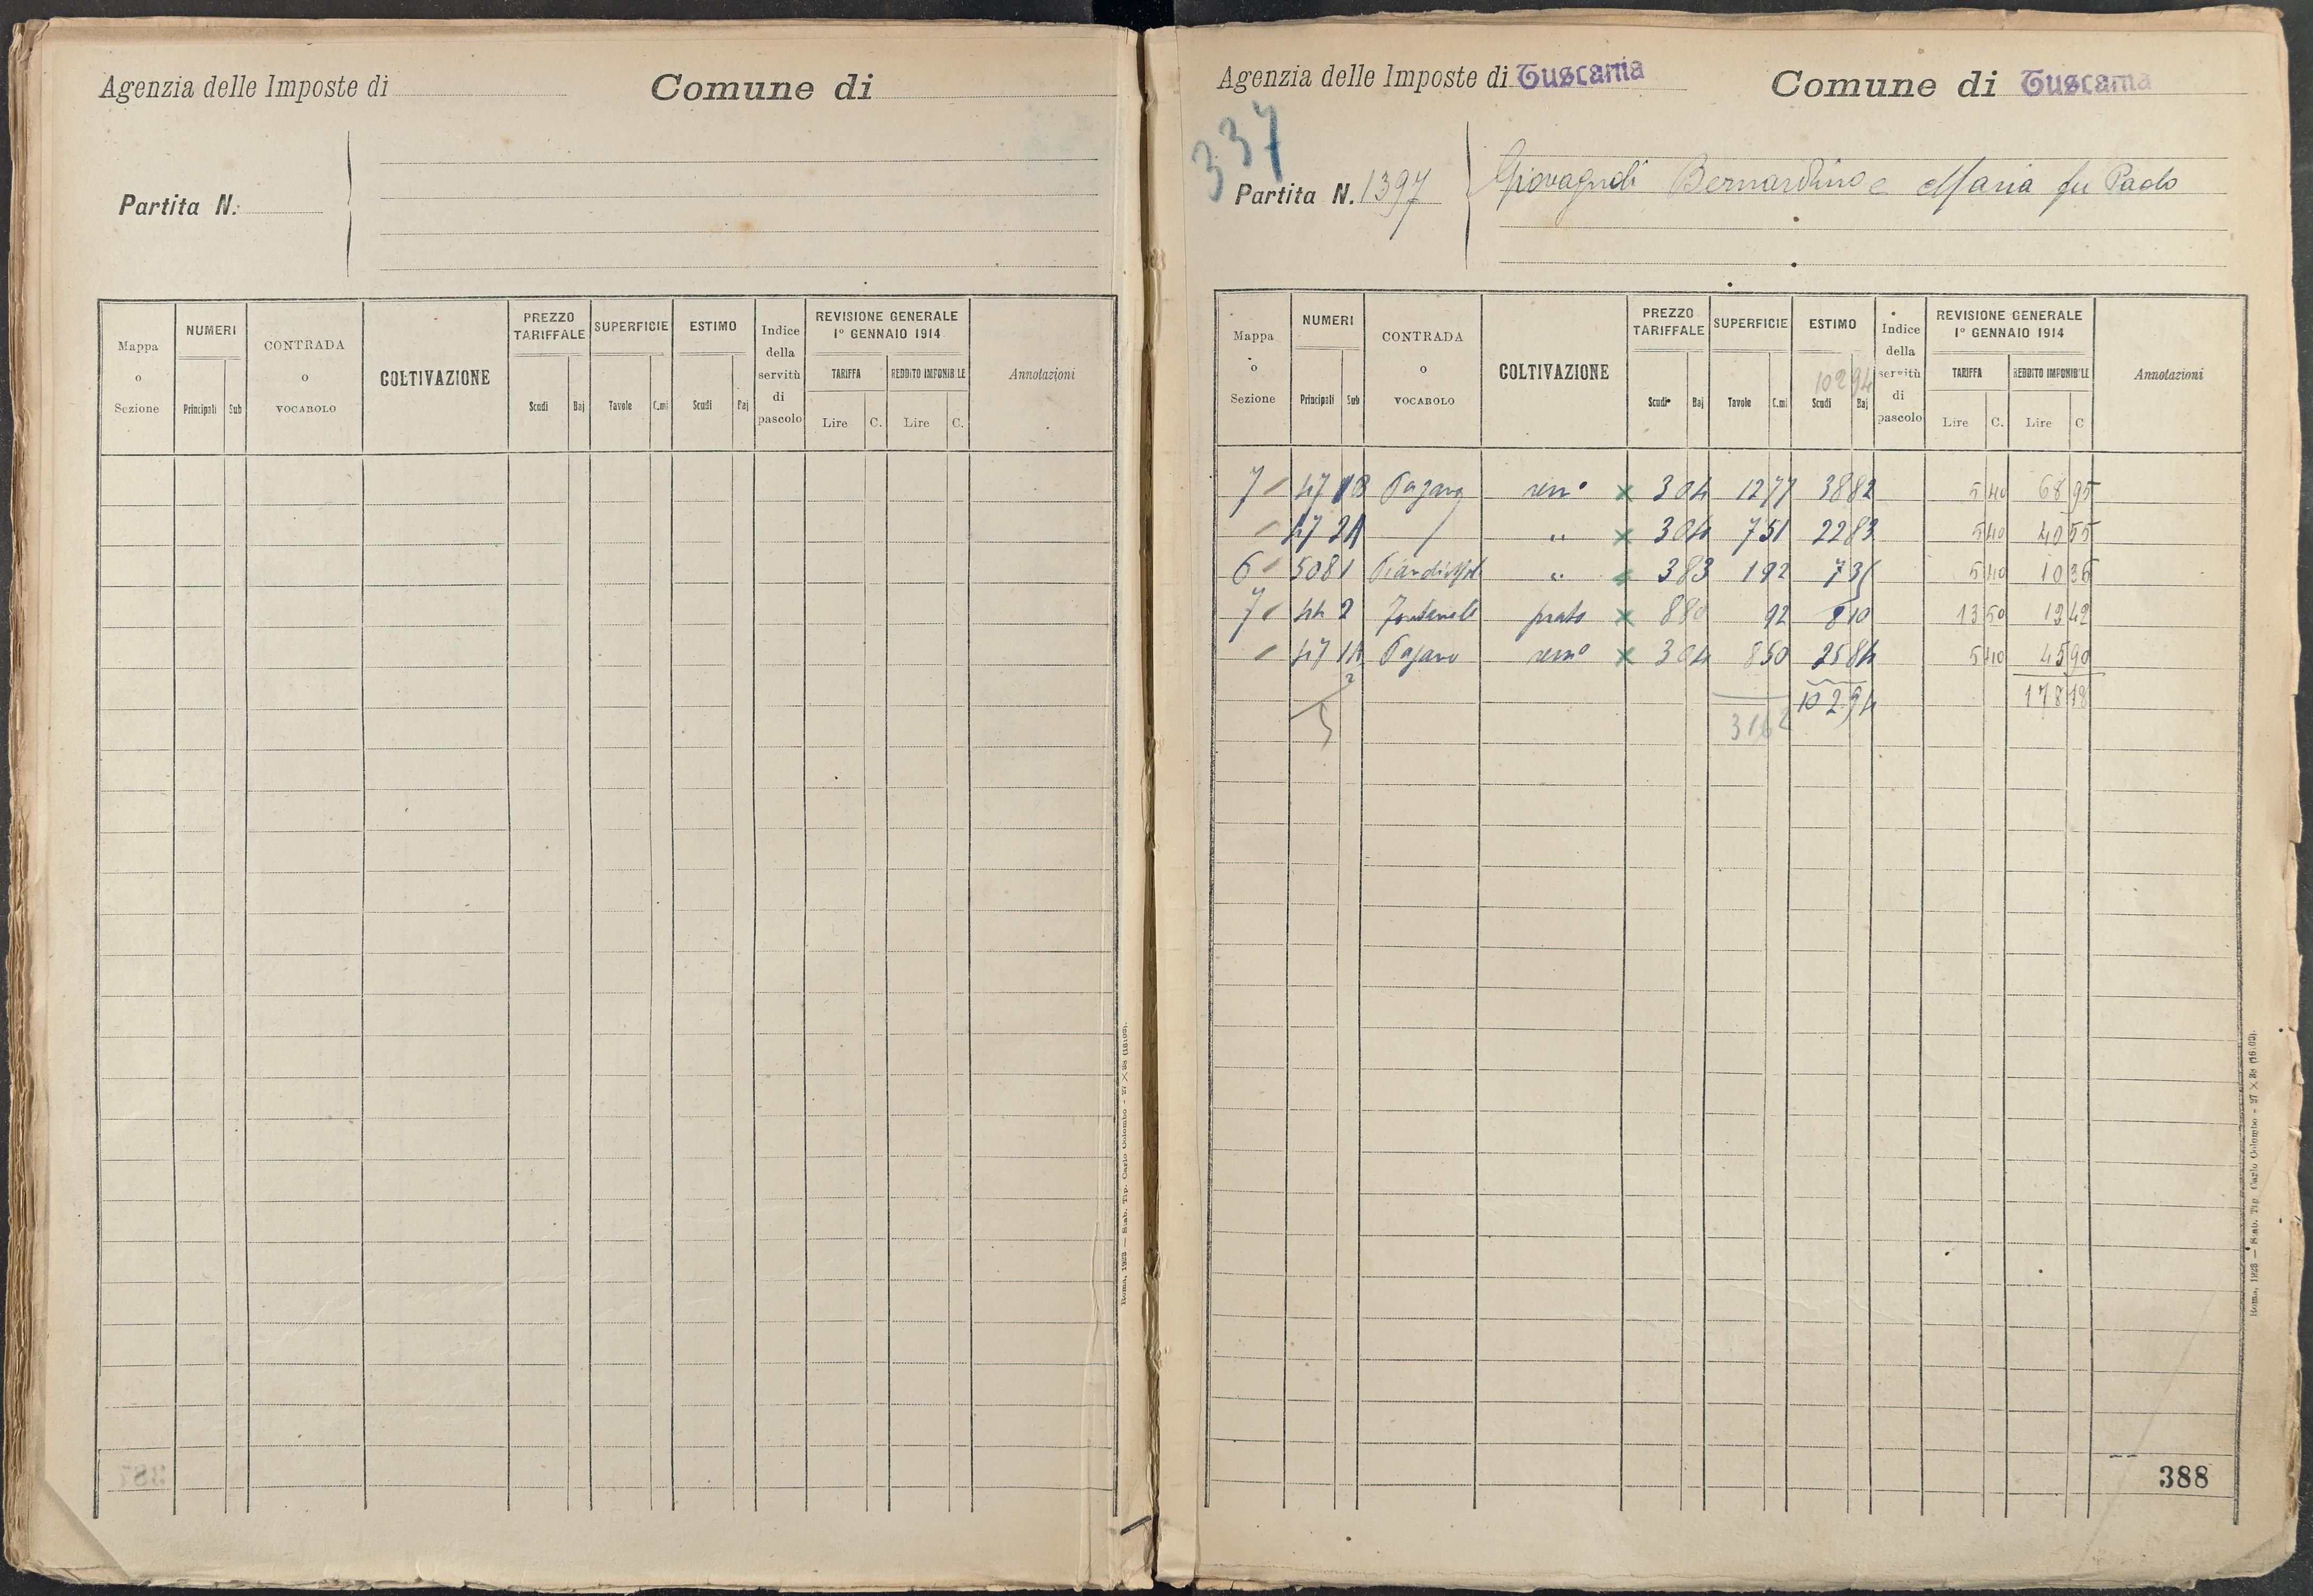 Agenzia delle Imposte di Comune di
Partita N.
Mappa o Sezione NUMERI CONTRADA o VOCABOLO COLTIVAZIONE PREZZO TARIFFALE SUPERFICIE ESTIMO Indice della servitù di pascolo REVISIONE GENERALE 1° GENNAIO 1914 Annotazioni
TARIFFA REDDITO IMPONIBILE
Principali Sub Scudi Baj Tavole C.mi Scudi Baj Lire C. Lire C.
387
Roma, 1923 — Stab. Tip. Carlo Colombo - 27 X 38 (16:05).
Agenzia delle Imposte di Tuscania Comune di Tuscania
337
Partita N. 1397 Giovagnoli Bernardino e Maria fu Paolo
Mappa o Sezione NUMERI CONTRADA o VOCABOLO COLTIVAZIONE PREZZO TARIFFALE SUPERFICIE ESTIMO Indice della servitù di pascolo REVISIONE GENERALE 1° GENNAIO 1914 Annotazioni
TARIFFA REDDITO IMPONIBILE
10294
Principali Sub Scudi Baj Tavole C.mi Scudi Baj Lire C. Lire C
7 47 1B semo x 3 04 12 77 38 82 5 40 68 95
47 2A / " x 3 04 7 51 22 83 5 40 40 55
6 508 1 " x 3 83 1 92 7 35 5 40 10 36
7 44 2 prato x 8 80 92 8 10 13 50 12 42
47 1A semo x 3 04 8 50 25 84 5 40 45 90
2
102 94 178 18
5 31 62
388
Roma, 1923 — Stab. Tip. Carlo Colombo - 27 X 38 (16:05).